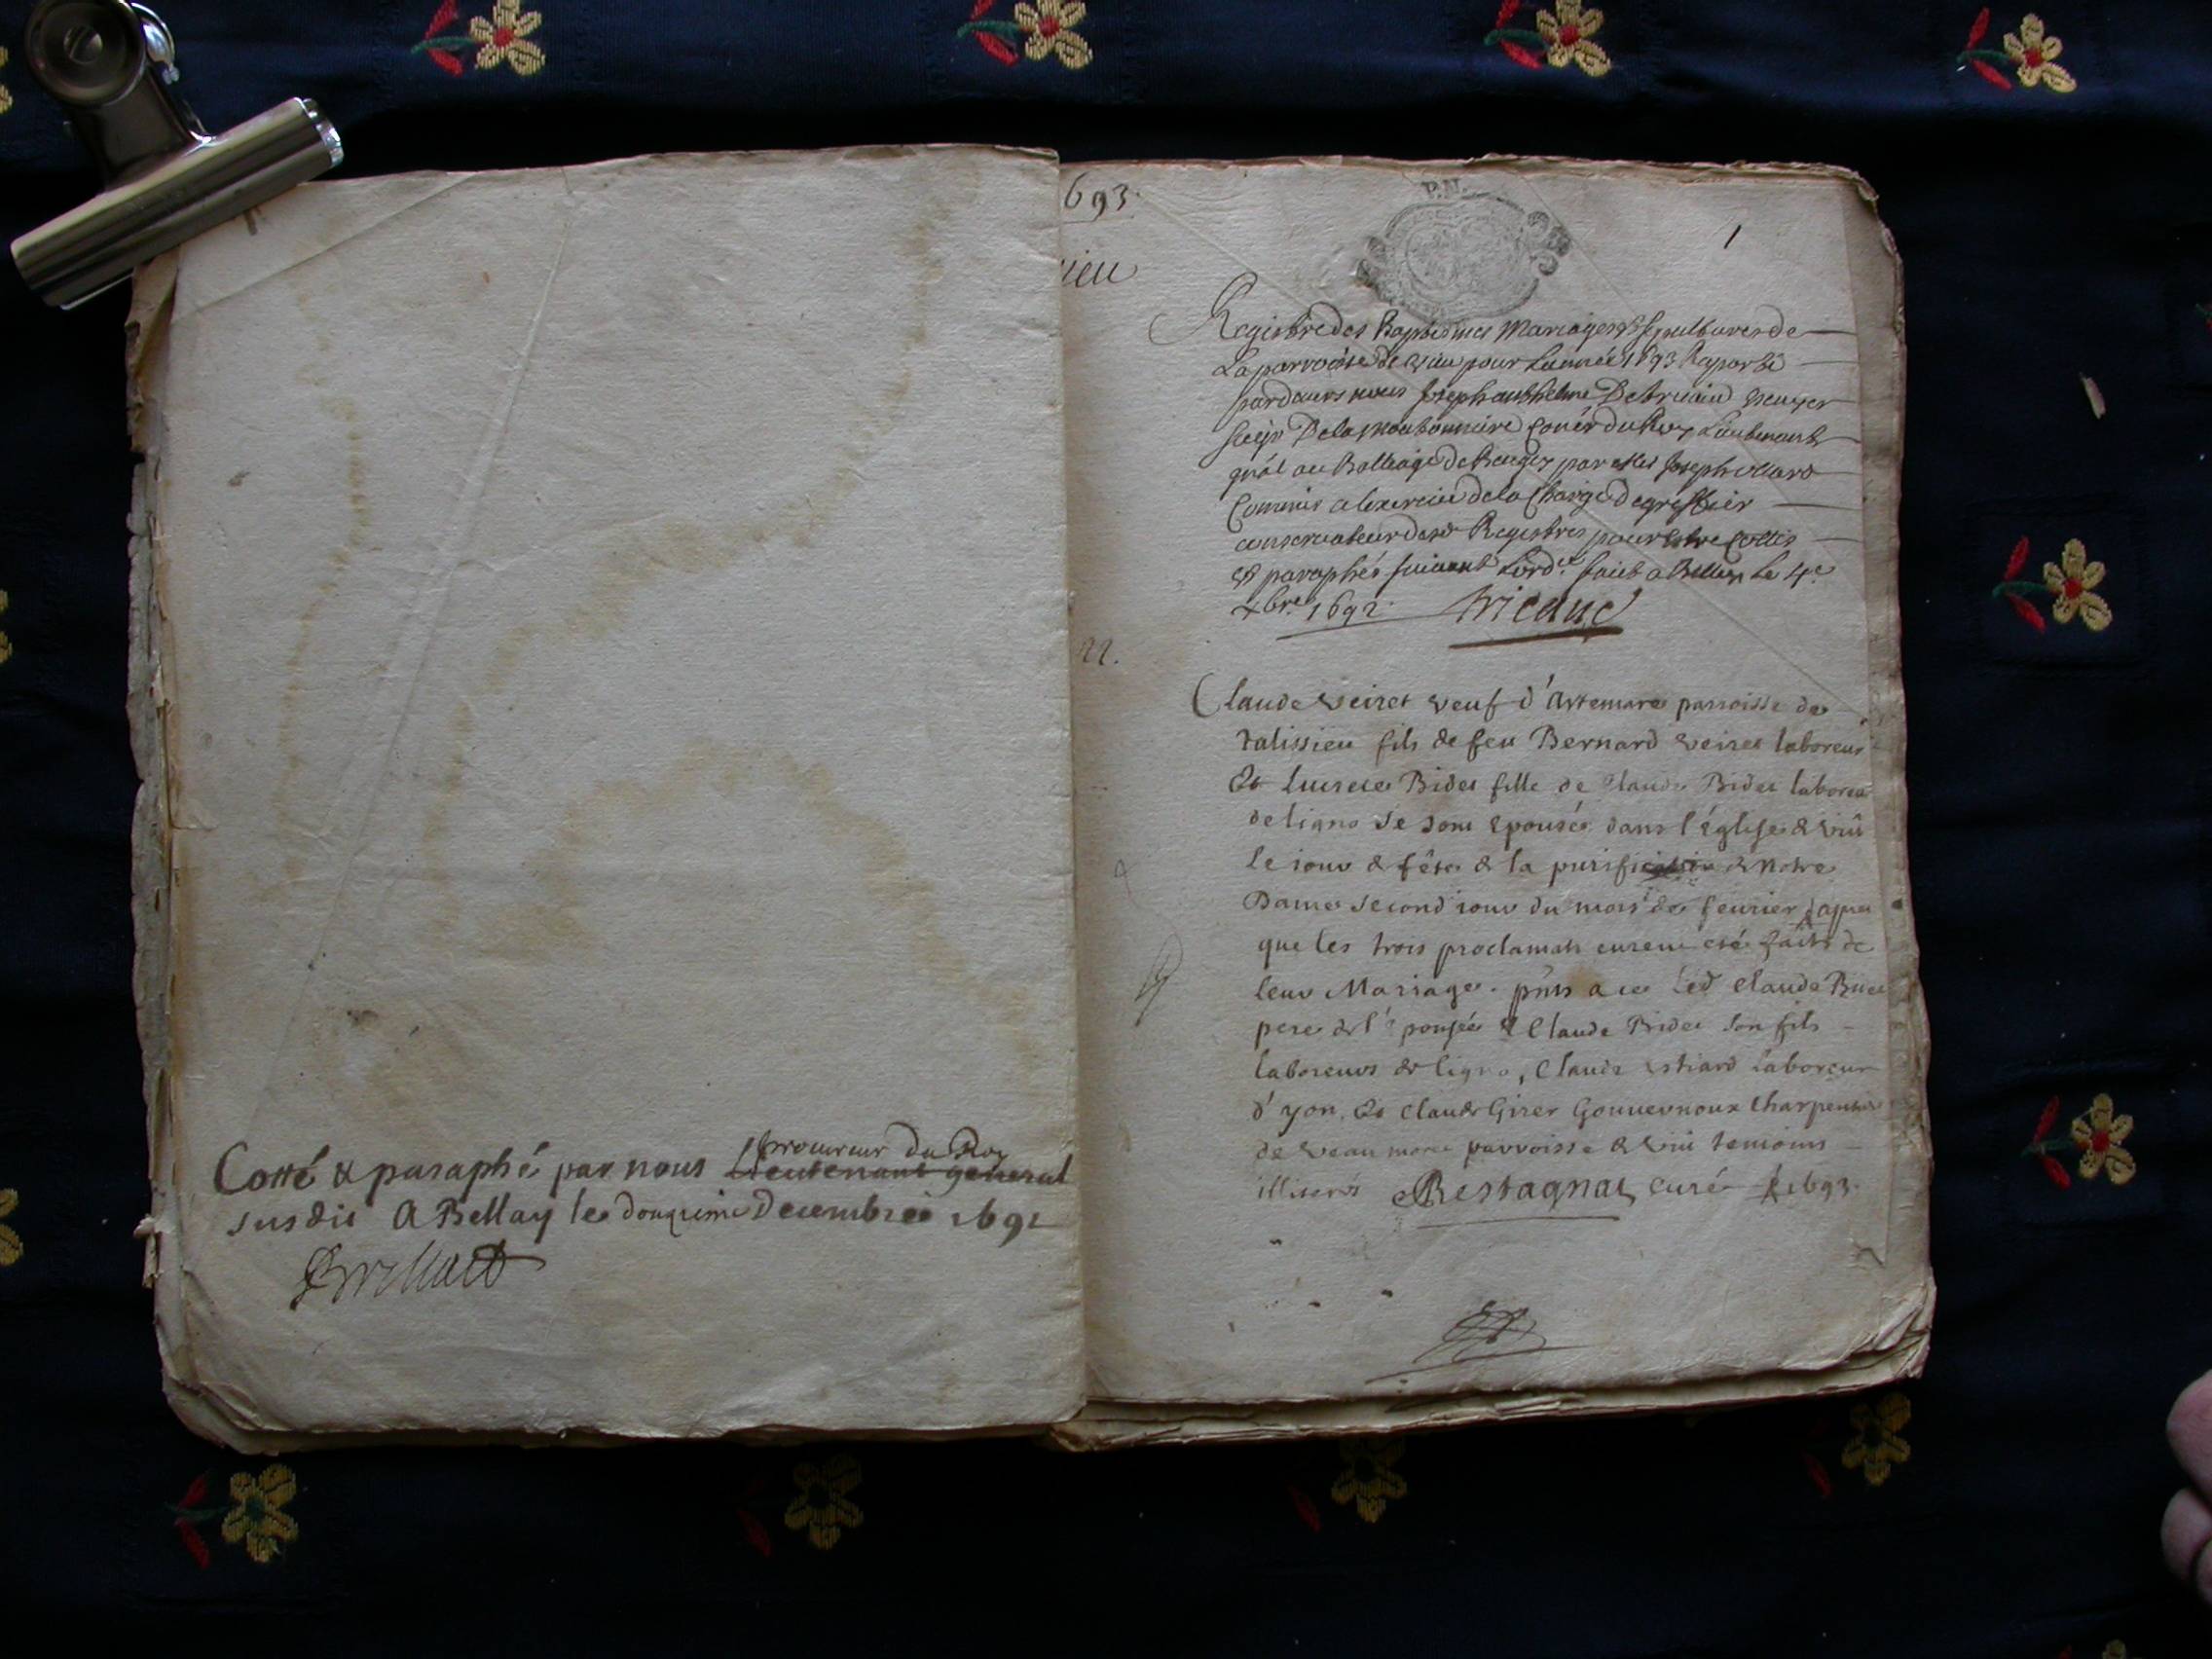 Cotté & paraphé par nous Procureur du Roy
Lieutenant general
susdit A Bellay le douzieme Decembre 1692
Brillat
693.
ieu
22.
P. N.
1
Registre des Baptesmes Mariages & Sepultures de
La parroisse de Vieu pour Lannée 1693 Raporté
pardevers nous Joseph anthelme De tricaud Escuyer
Seigr De la moutonniere Coner du Roy Lieutenant
gnâl au Balliage de Beugey par Me Joseph
Commis a lexercice de la Charge de greffier
conservateur desd Registres pour estre Cottés
et paraphés suivant Lord. faict a Belley Le 4e
xbre 1692 tricaud
Claude veiret veuf d'Artemare parroisse de
talissieu fils de feu Bernard veiret laboreur
Et Lucrece Bidet fille de Claude Bidet laboreur
de ligno se sont epousés dans l'église de viû
le iour de fête de la purification de Notre
Dame second iour du mois de feurier apres
que les trois proclamats eurent eté faits de
leur Mariage. pnts a ce led Claude Bidet
pere de l'epousée & Claude Bidet son fils
laboreurs de ligno, Claude laboreur
d'yon, Et Claude Girer Gouuernoux Charpentier
de veaumore parroisse de viû temoins
illiterés Restagnat curé 1693.